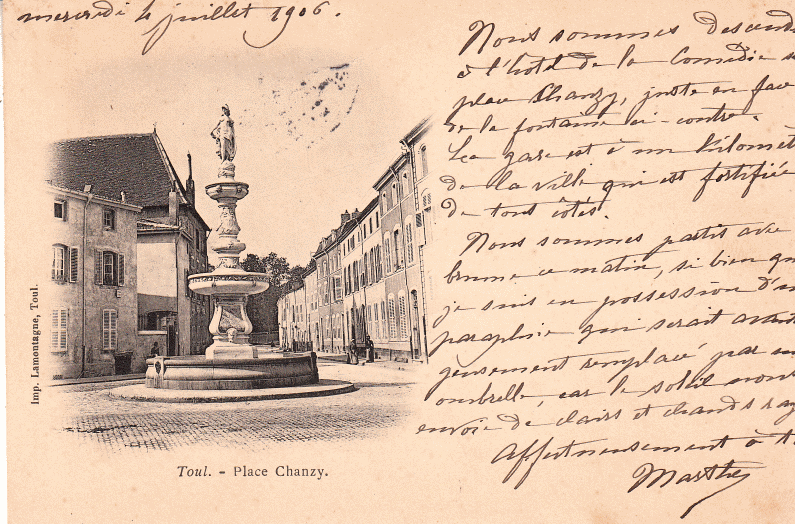 mercredi 4 juillet 1906.
Nous sommes descend
à l'hôtel de la Comédie s
place Chanzy, juste en face
de la fontaine ci-contre.
La gare est à un kilomèt
de la ville qui est fortifiée
de tous côtés.
Nous sommes partis avec
brume ce matin, si bien qu
je suis en possession d'u
parapluie qui serait avanta
geusement remplacé par un
ombrelle, car le soleil nous
envoie de clairs et chauds ray
Affectueusement à t
Marthe
Imp. Lamontagne, Toul.
Toul. - Place Chanzy.